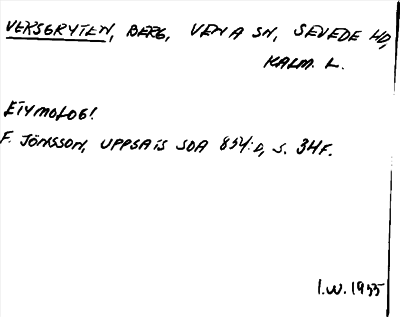 VERSGRYTEN, BERG, VENA SN, SEVEDE HD,
KALM. L.
ETYMOLOG!
F. JÖNSSON, UPPSA IS SOA 854:D, S. 34F.
I.W. 1955